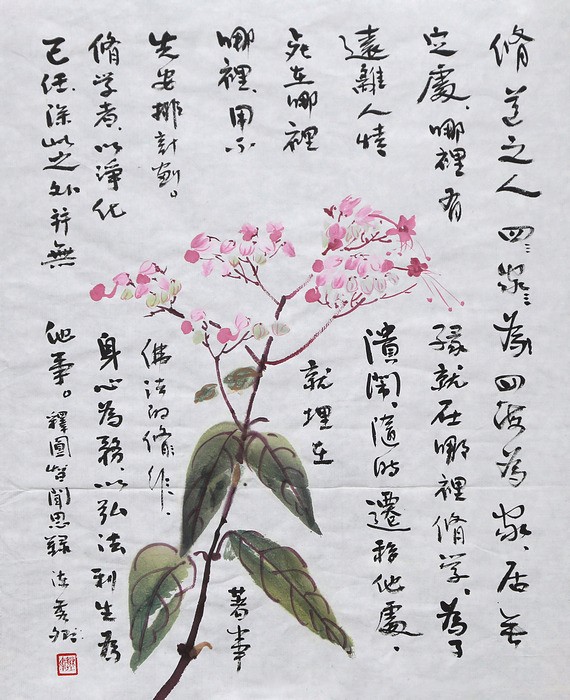 脩道之人為四海為家、居無
定處、哪裡有緣就在哪裡脩学、為了
遠離人情憒鬧、隨時遷移他處、
死在哪裡就埋在
哪裡、用不著事
先安排計劃。佛法的脩作、
脩学者、以淨化身心為務、以弘法利生為
己任、除此之外并無他事。釋圓智聞思錄